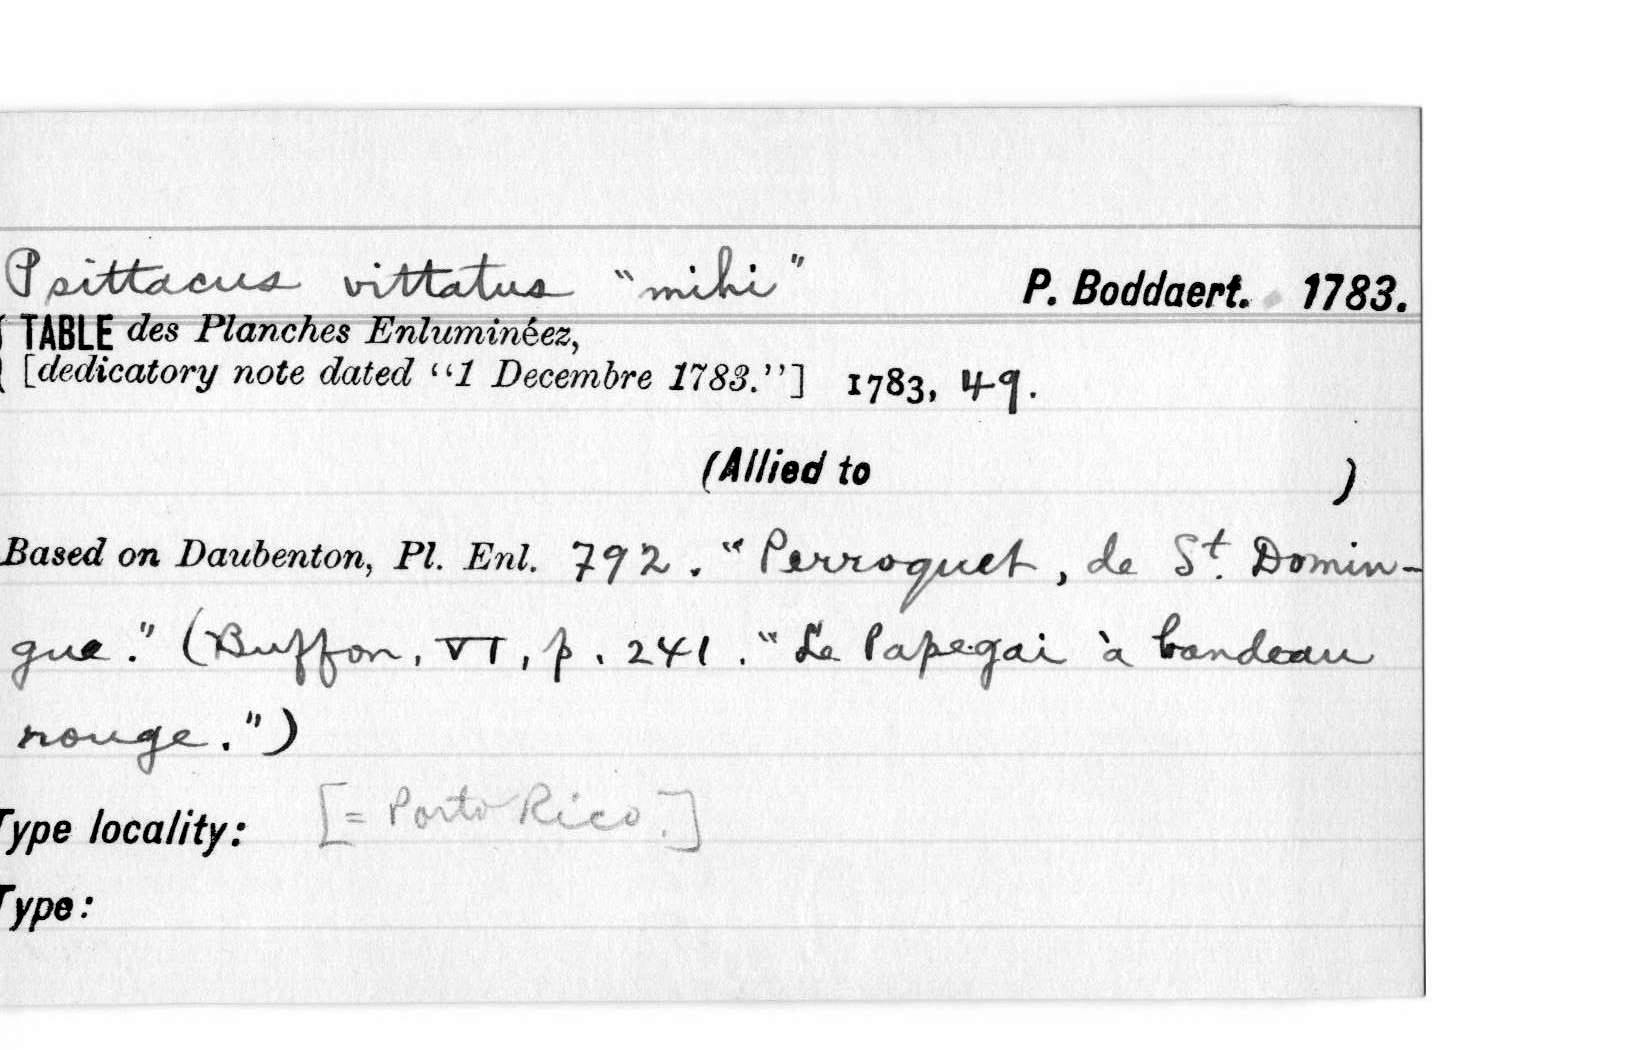 Psittacus vittatus "mihi" P. Boddaert. 1783.
TABLE des Planches Enluminéez,
[dedicatory note dated "1 Decembre 1783."] 1783, 49.
(Allied to )
Based on Daubenton, Pl. Enl. 792. "Perroquet, de St. Domin-
gue." (Buffon, VI, p. 241. "Le Papegai à bandeau
rouge.")
Type locality: [= Porto Rico.]
Type: